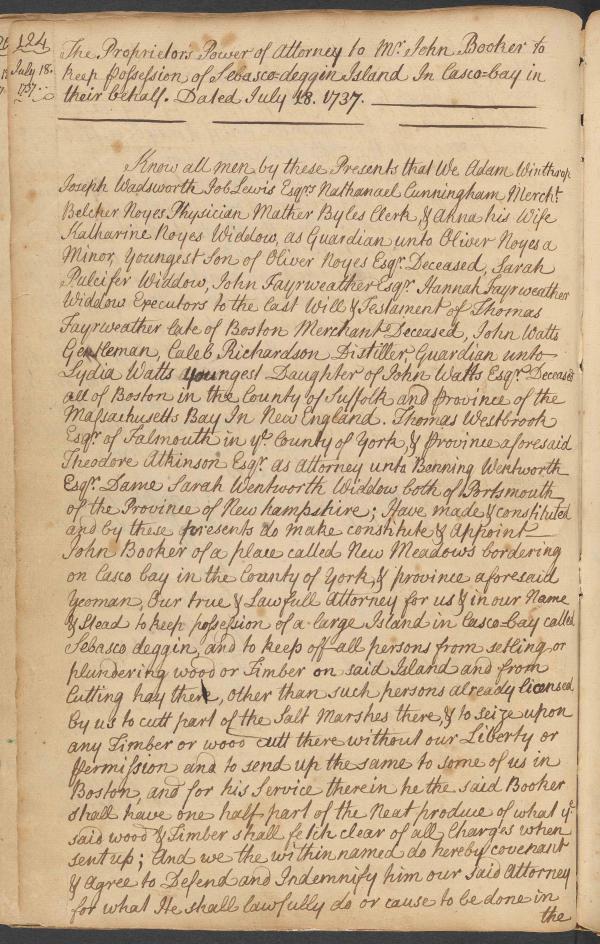 124
July 18.
1737.
The Proprietors Power of Attorney to Mr. John Booker to
keep possession of Sebasco=deggin Island In Casco=bay in
their behalf. Dated July 18. 1737.
Know all men by these Presents that We Adam Winthrop
Joseph Wadsworth Job Lewis Esqrs Nathanael Cunningham Mercht
Belcher Noyes Physician Mather Byles Clerk, & Anna his Wife
Katharine Noyes Widdow, as Guardian unto Oliver Noyes a
Minor, Youngest Son of Oliver Noyes Esqr. Deceased, Sarah
Pulcifer Widdow, John Fayrweather Esqr. Hannah Fayrweather
Widdow Executors to the Last Will & Testament of Thomas
Fayrweather late of Boston Merchant Deceased, John Watts
Gentleman, Caleb Richardson Distiller Guardian unto
Lydia Watts youngest Daughter of John Watts Esqr. Deceasd
all of Boston in the County of Suffolk and Province of the
Massachusetts Bay In New England. Thomas Westbrook
Esqr. of Falmouth in ye. County of York, & Province aforesaid
Theodore Atkinson Esqr. as attorney unto Benning Wentworth
Esqr. Dame Sarah Wentworth Widdow both of Portsmouth
of the Province of New hampshire; Have made & constituted
and by these presents do make constitute & Appoint
John Booker of a place called New Meadows bordering
on Casco bay in the County of York, & province aforesaid
Yeoman, Our true & Lawfull Attorney for us & in our Name
& Stead to keep possession of a large Island in Casco=bay called
Sebasco deggin, and to keep off all persons from setling or
plundering wood or Timber on said Island and from
Cutting hay there, other than such persons already licensed
by us to cutt part of the Salt Marshes there, & to seize upon
any Timber or wood cutt there without our Liberty or
Permission and to send up the same to some of us in
Boston, and for his Service therein he the said Booker
shall have one half part of the Neat produce of what ye.
said wood & Timber shall fetch clear of all Charges when
sent up; And we the within named do hereby covenant
& agree to Defend and Indemnify him our said Attorney
for what He shall lawfully do or cause to be done in
the